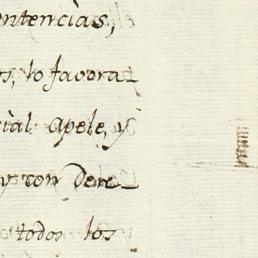 entencias,
s, lo favora-
cial apele, y
y con dere-
todos los